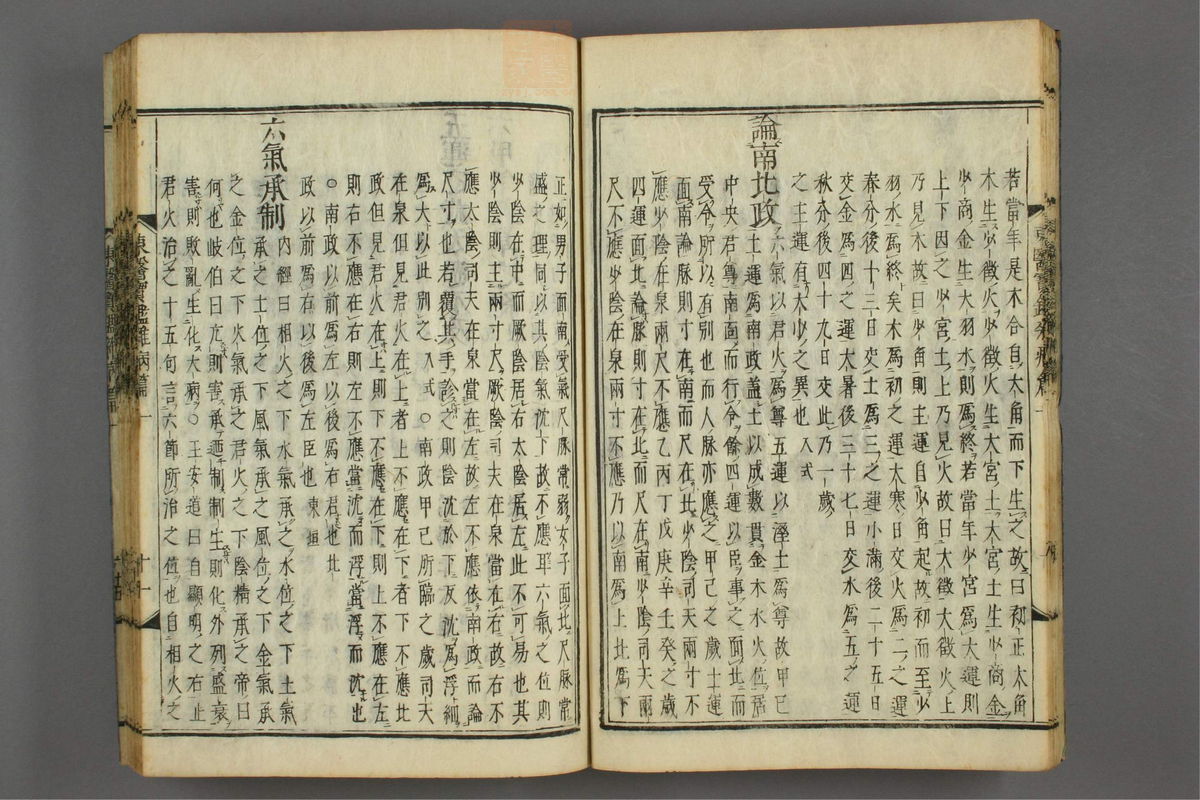 若當年是木合自太角而下生之故曰初正太角
木生少徵火少徵火生大宮土大宮土生少商金
少商金生大羽水則爲終若當年少宮爲大運則
上下因之少宮土上乃見火故曰大徵大徵火上
乃見木故曰少角則主運自少角起故初而至少
羽水爲終矣木爲初之運大寒日交火爲二之運
春分後十三日交土爲三之運小滿後二十五日
交金爲四之運大暑後三十七日交水爲五之運
秋分後四十九日交此乃一歲
之主運有太少之異也入式
論南北政
六氣以君火爲尊五運以濕土爲尊故甲己
土運爲南政盖土以成數貫金木水火位居
中央君尊南面而行令餘四運以臣事之面北而
受令所以有別也而人脉亦應之甲己之歲土運
面南論脉則寸在南而尺在北少陰司天兩寸不
應少陰在泉兩尺不應乙丙丁戊庚辛壬癸之歲
四運面北論脉則寸在北而尺在南少陰司天兩
尺不應少陰在泉兩寸不應乃以南爲上北爲下
正如男子面南受氣尺脉常弱女子面北尺脉常
盛之理同以其陰氣沈下故不應耳六氣之位則
少陰在中而厥陰居右太陰居左此不可易也其
少陰則主兩寸尺厥陰司天在泉當在右故右不
應太陰司天在泉當在左故左不應依南政而論
尺寸也若覆其手診之則陰沈於下反沈爲浮細
爲大以此別之入式○南政甲己所臨之歲司天
在泉但見君火在上者上不應在下者下不應北
政但見君火在上則下不應在下則上不應在左
則右不應在右則左不應當沈而浮當浮而沈也
○南政以前爲左以後爲右君也北
政以前爲右以後爲左臣也東垣
六氣承制
內經曰相火之下水氣承之水位之下土氣
承之土位之下風氣承之風位之下金氣承
之金位之下火氣承之君火之下陰精承之帝曰
何也岐伯曰亢則害承迺制制生則化外列盛衰
害則敗亂生化大病○王安道曰自顯明之右止
君火治之十五句言六節所治之位也自相火之
東醫寶鑑雜病篇一